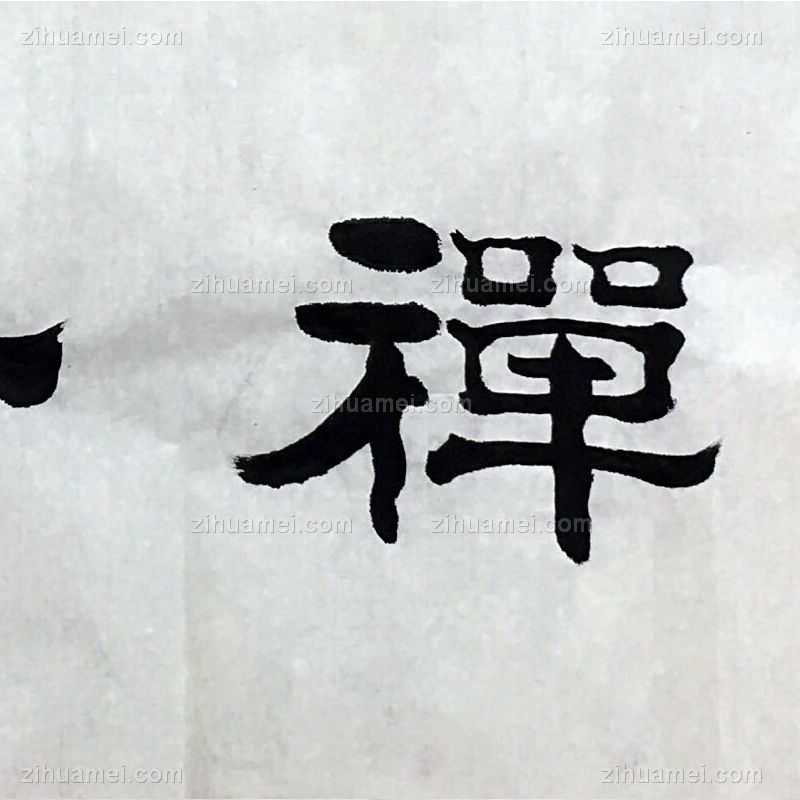 禪
zihuamei.com zihuamei.com zihuamei.com
zihuamei.com zihuamei.com
zihuamei.com
zihuamei.com zihuamei.com
zihuamei.com zihuamei.com